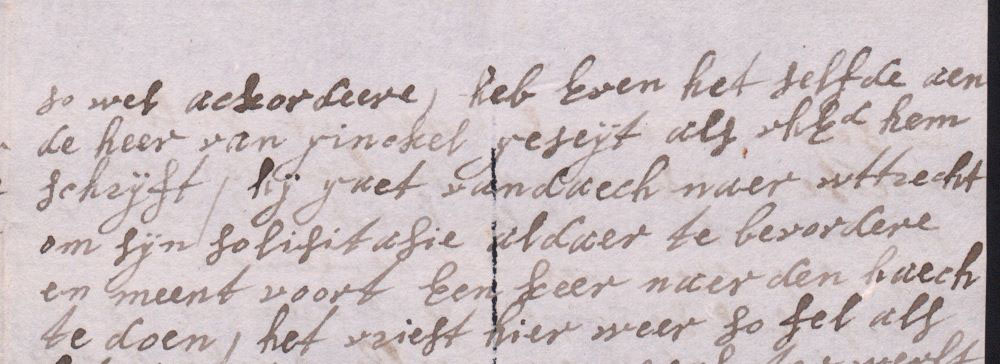 so wel ackordeere, heb even het selfde aen
de heer van ginckel geseyt als uhEd hem
schryft, hy gaet vandaech naer uttrecht
om syn solisitasie aldaer te bevordere
en meent voort een keer naer den haech
te doen, het vriest hier weer so fel als